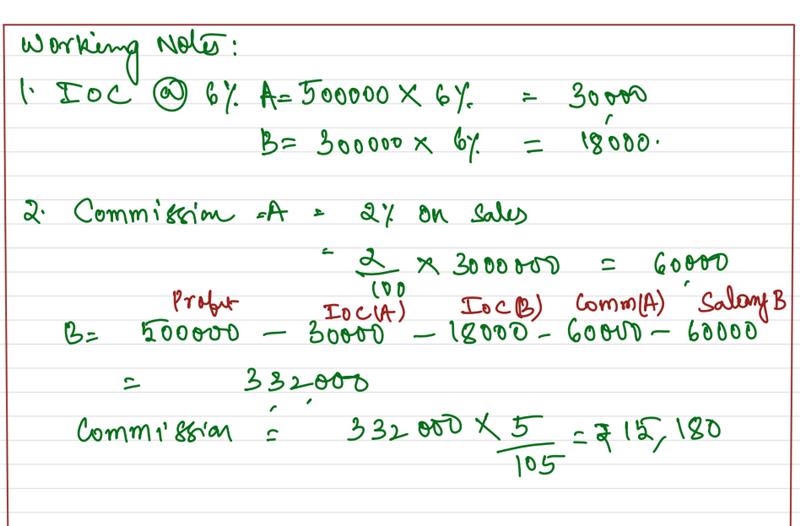 Working Notes:
1. IOC @ 6% A= 500000 × 6% = 30000
B= 300000 × 6% = 18000.
2. Commission =A = 2% on Sales
= 2/100 × 3000000 = 60000
Profit IOC(A) IOC(B) Comm(A) Salary B
B= 500000 – 30000 – 18000 – 60000 – 60000
= 332000
Commission = 332000 × 5/105 = ₹ 15,180